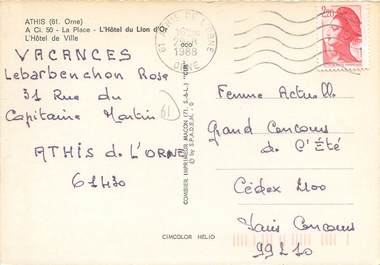 ATHIS (61. Orne)
A Cl. 50 - La Place - L'Hôtel du Lion d'Or
L'Hôtel de Ville
VACANCES
Lebarbenchon Rose
31 Rue du
Capitaine Martin
ATHIS de L'ORNE
61430
61
61 ATHIS DE L'ORNE
1988
ORNE
2,20
Femme Actuelle
Grand Concours
de l'Été
Cédex 2100
Paris Concours
99210
COMBIER IMPRIMEUR MACON (71. S.-&-L.) "CIM"
© by S.P.A.D.E.M.
CIMCOLOR HELIO